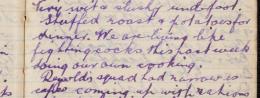 Very wet & slushy underfoot.
Stuffed roast & potatoes for
dinner. We are living like
fighting cocks this past week
doing our own cooking.
Reynolds squad had narrow es
capes coming up with rations